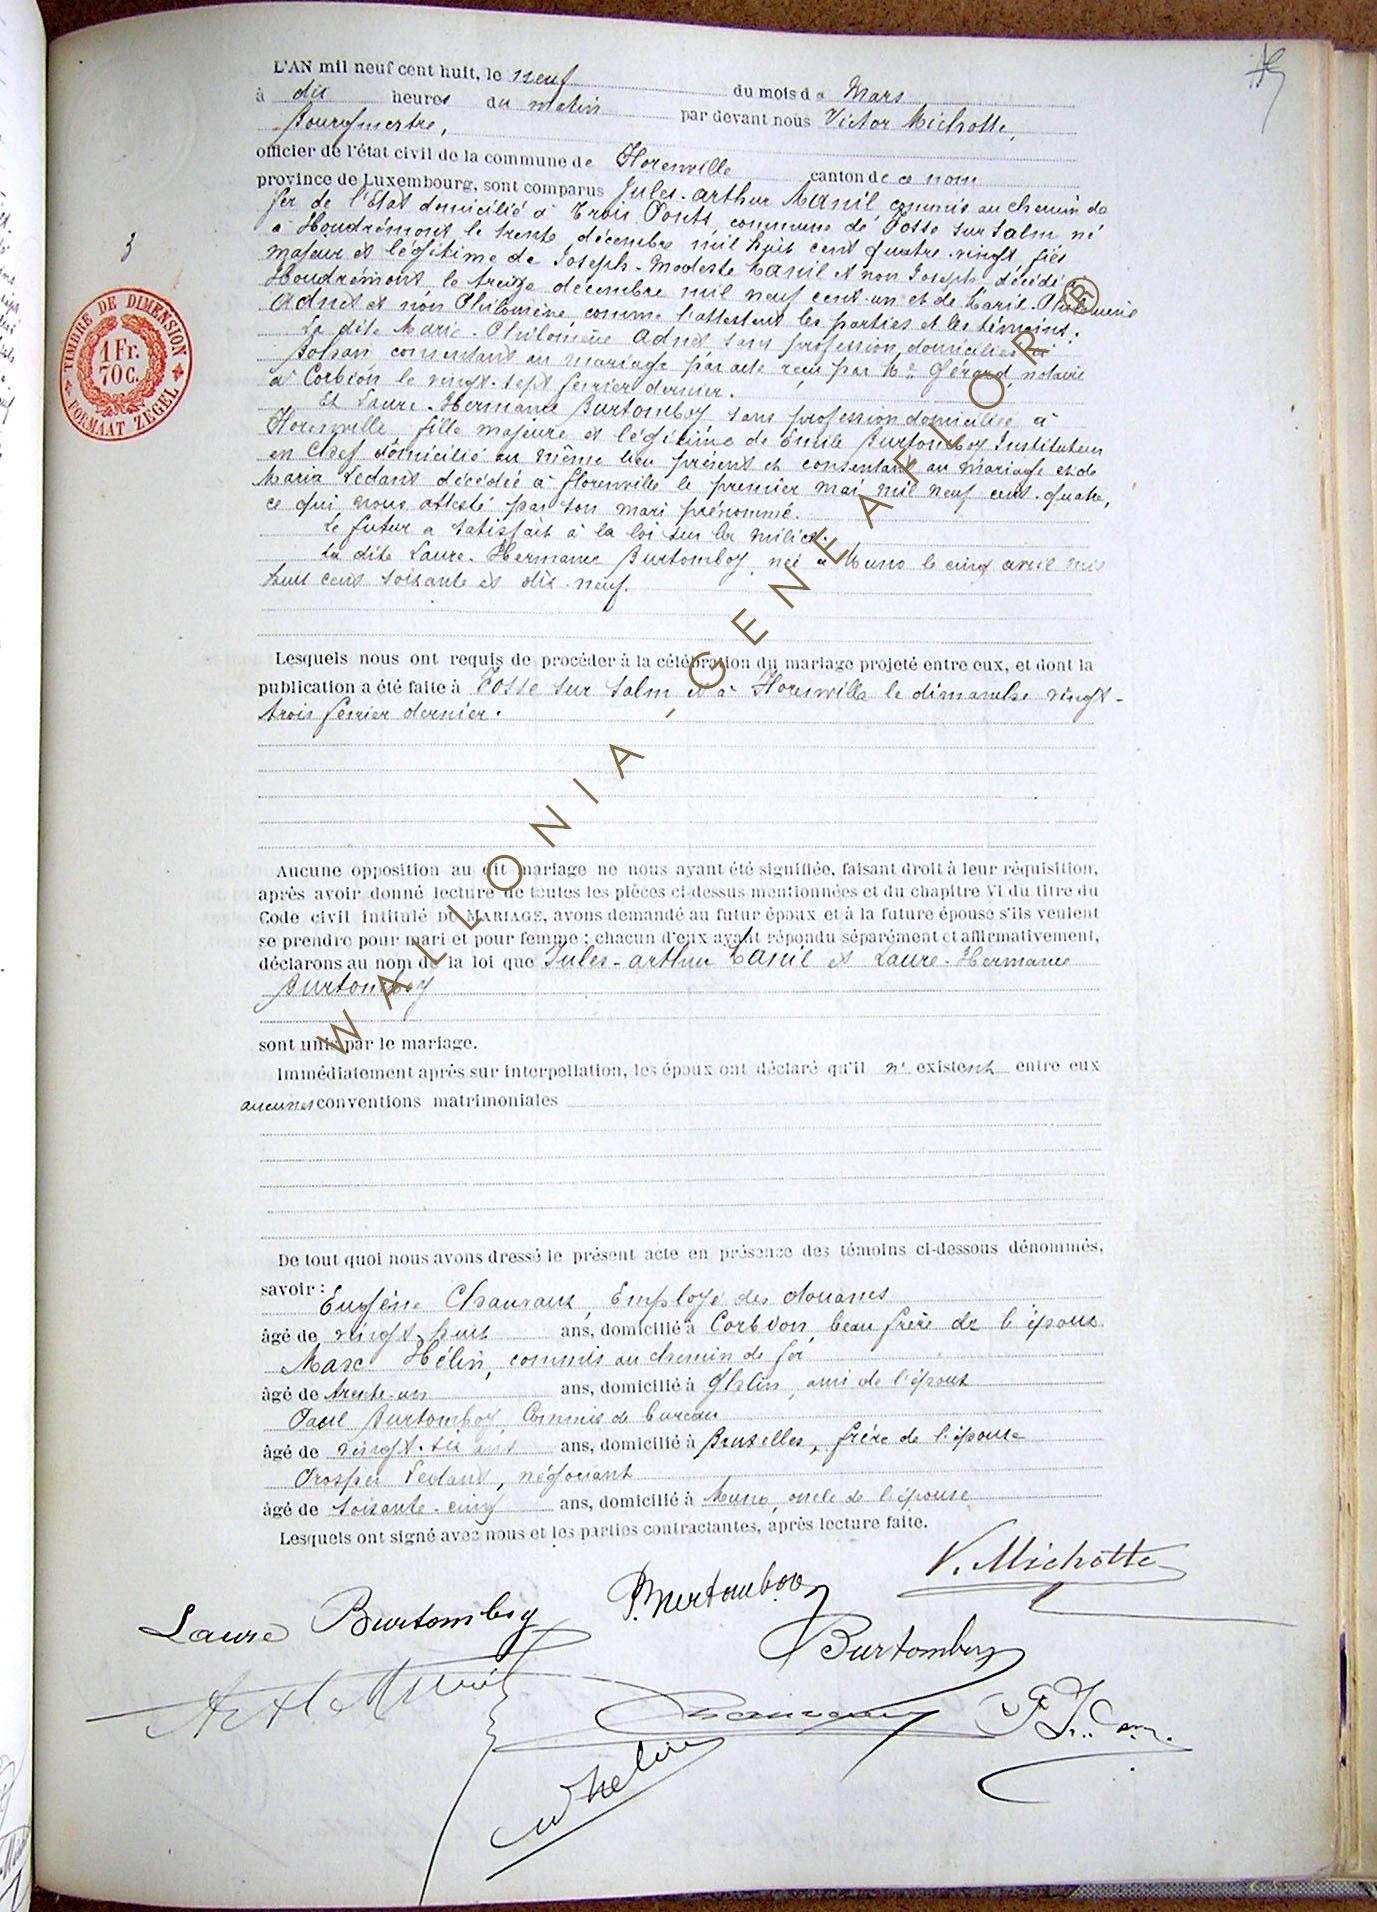 L'AN mil neuf cent huit, le neuf du mois de Mars
à dix heures du matin par devant nous Victor Michotte,
Bourgmestre,
officier de l'état civil de la commune de Florenville canton de ce nom
province de Luxembourg, sont comparus Jules-arthur Manil commis au chemin de
fer de l'Etat domicilié à Trois Ponts, commune de Fosse sur Salm né
à Houdrémont le trente décembre mil huit cent quatre-vingt, fils
majeur et légitime de Joseph-Modeste Manil et non Joseph décédé à
Houdrémont, le treize décembre mil neuf cent-un et de Marie-Philomène
Adnet et non Philomène comme l'attestent les parties et les témoins.
La dite Marie-Philomène Adnet sans profession, domiciliée
consentant au mariage par acte reçu par Me Gérard, notaire
à Corbion le vingt-sept février dernier.
Et Laure-Hermance Burtomboy sans profession domiciliée à
Florenville fille majeure et légitime de Emile Burtomboy Instituteur
en Chef domicilié au même lieu présent et consentant au mariage et de
Maria Ledant décédée à Florenville le premier mai mil neuf cent-quatre,
ce qui nous attesté par son mari prénommé.
Le futur a satisfait à la loi sur la milice.
La dite Laure-Hermance Burtomboy née à Muno le cinq avril mil
huit cent soixante et dix-neuf.
Lesquels nous ont requis de procéder à la célébration du mariage projeté entre eux, et dont la
publication a été faite à Fosse sur Salm et à Florenville le dimanche vingt-
trois février dernier.
Aucune opposition au dit mariage ne nous ayant été signifiée, faisant droit à leur réquisition,
après avoir donné lecture de toutes les pièces ci-dessus mentionnées et du chapitre VI du titre du
Code civil intitulé DU MARIAGE, avons demandé au futur époux et à la future épouse s'ils veulent
se prendre pour mari et pour femme ; chacun d'eux ayant répondu séparément et affirmativement,
déclarons au nom de la loi que Jules-arthur Manil et Laure-Hermance
Burtomboy
sont unis par le mariage.
Immédiatement après sur interpellation, les époux ont déclaré qu'il n'existent entre eux
aucunes conventions matrimoniales
De tout quoi nous avons dressé le présent acte en présence des témoins ci-dessous dénommés,
savoir :
Eugène Chauvaux, Employé des douanes
âgé de vingt-huit ans, domicilié à Corbion, beau frère de l'époux
Marc Hélin, commis au chemin de fer
âgé de trente-un ans, domicilié à Ghlin, ami de l'époux
Paul Burtomboy, Commis de bureau
âgé de vingt-six ans ans, domicilié à Bruxelles, frère de l'épouse
Prosper Ledant, négociant
âgé de soixante-cinq ans, domicilié à Muno, oncle de l'épouse
Lesquels ont signé avec nous et les parties contractantes, après lecture faite.
V. Michotte
P. Burtomboy
Laure Burtomboy
Burtomboy
TIMBRE DE DIMENSION
1 Fr. 70 c.
FORMAAT ZEGEL
WALLONIA-GENEAFLOR®